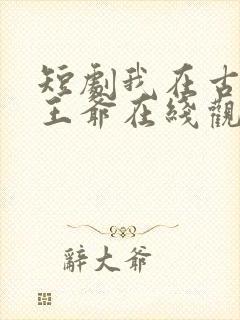 短劇我在古
王爺在綫觀
辭大爺